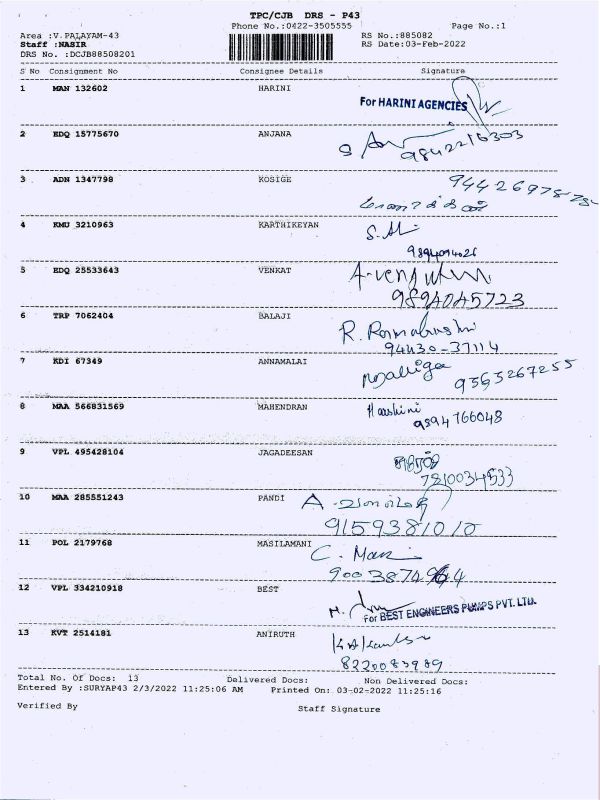 TPC/CJB DRS - P43
Phone No.:0422-3505555 Page No.:1
Area :V.PALAYAM-43 RS No.:885082
Staff :NASIR RS Date:03-Feb-2022
DRS No. :DCJB88508201
S No Consignment No Consignee Details Signature
1 MAN 132602 HARINI
For HARINI AGENCIES
2 EDQ 15775670 ANJANA
9842216303
3 ADN 1347798 KOSIGE
4 KMU 3210963 KARTHIKEYAN
9894094026
5 EDQ 25533643 VENKAT
9894045723
6 TRP 7062404 BALAJI
R.
94430-37114
7 KDI 67349 ANNAMALAI
8 MAA 566831569 MAHENDRAN
Harshini
9894766048
9 VPL 495428104 JAGADEESAN
10 MAA 285551243 PANDI
A
9159381010
11 POL 2179768 MASILAMANI
C. Mani
12 VPL 334210918 BEST
For BEST ENGINEERS PUMPS PVT. LTD.
13 KVT 2514181 ANIRUTH
8220083989
Total No. Of Docs: 13 Delivered Docs: Non Delivered Docs:
Entered By :SURYAP43 2/3/2022 11:25:06 AM Printed On: 03-02-2022 11:25:16
Verified By Staff Signature